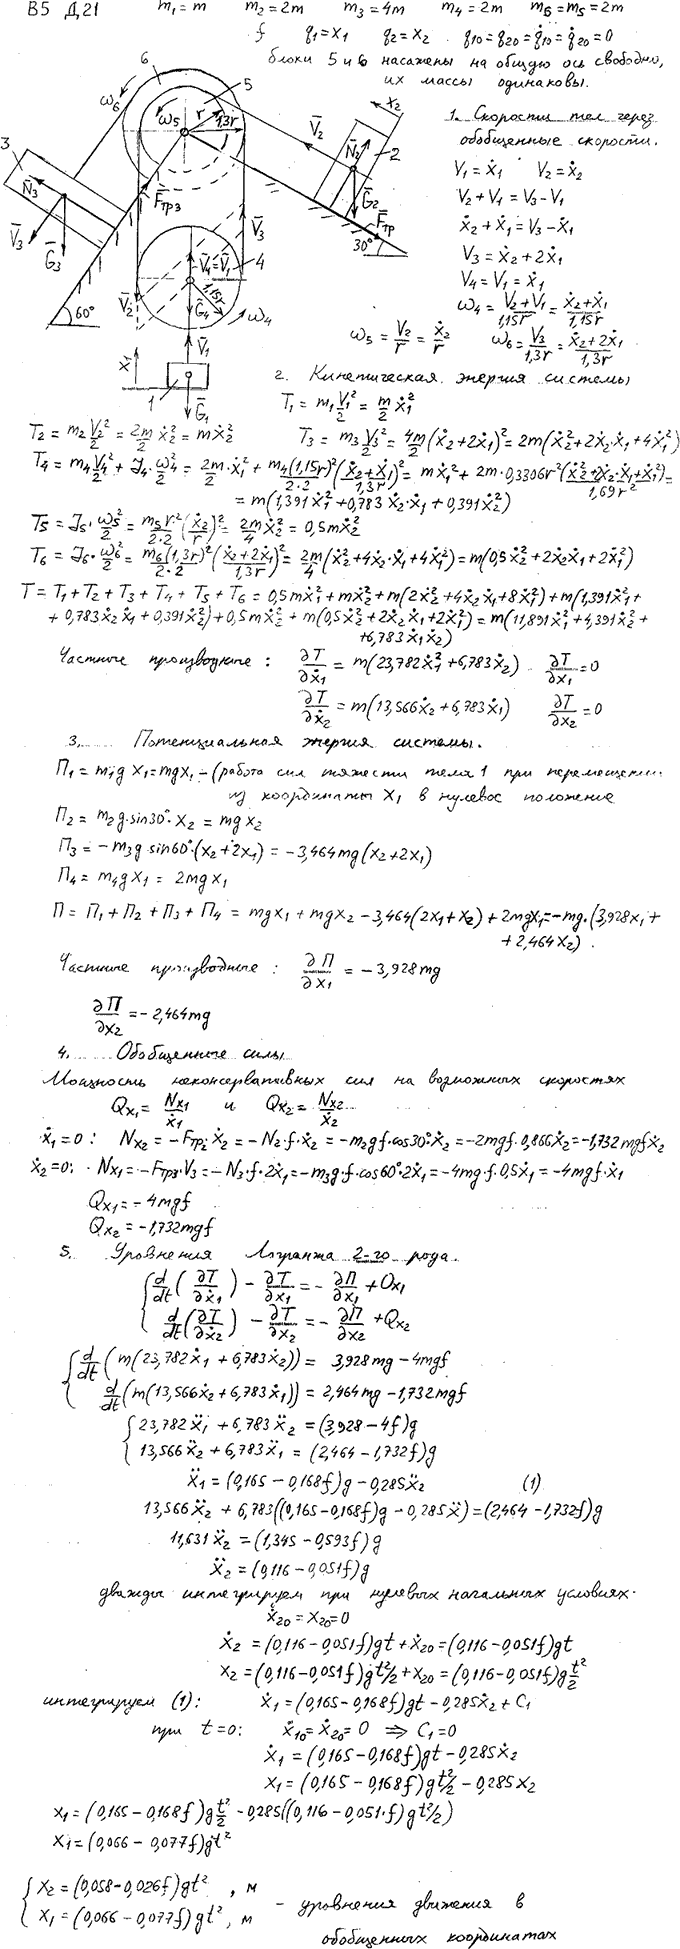 В5 Д,21 m₁ = m m₂ = 2m m₃ = 4m m₄ = 2m m₆ = m₅ = 2m
f q₁ = x₁ q₂ = x₂ q₁₀ = q₂₀ = q̇₁₀ = q̇₂₀ = 0
блоки 5 и 6 насажены на общую ось свободно,
их массы одинаковы.
6
5
ω₆
ω₅
r
1,3r
V̄₂
x₂
N̄₂
2
Ḡ₂
F̄тр
30°
3
N̄₃
V̄₃
Ḡ₃
F̄тр3
60°
V̄₃
V̄₄=V̄₁
4
1,15r
V̄₂
Ḡ₄
ω₄
V̄₁
x̄
1
Ḡ₁
1. Скорости тел через
обобщенные скорости.
V₁ = ẋ₁ V₂ = ẋ₂
V₂ + V₁ = V₃ - V₁
ẋ₂ + ẋ₁ = V₃ - ẋ₁
V₃ = ẋ₂ + 2ẋ₁
V₄ = V₁ = ẋ₁
ω₄ = (V₂+V₁)/1,15r = (ẋ₂+ẋ₁)/1,15r
ω₅ = V₂/r = ẋ₂/r ω₆ = V₃/1,3r = (ẋ₂+2ẋ₁)/1,3r
2. Кинетическая энергия системы
T₁ = m₁V₁²/2 = m/2 ẋ₁²
T₂ = m₂V₂²/2 = 2m/2 ẋ₂² = mẋ₂² T₃ = m₃V₃²/2 = 4m/2 (ẋ₂+2ẋ₁)² = 2m(ẋ₂²+2ẋ₂·ẋ₁+4ẋ₁²)
T₄ = m₄V₄²/2 + J₄·ω₄²/2 = 2m/2·ẋ₁² + m₄(1,15r)²/2·2 ((ẋ₂+ẋ₁)/1,3r)² = mẋ₁² + 2m·0,3306r²(ẋ₂²+2ẋ₂·ẋ₁+ẋ₁²)/1,69r² =
= m(1,391ẋ₁²+0,783ẋ₂·ẋ₁+0,391ẋ₂²)
T₅ = J₅·ω₅²/2 = m₅r²/2·2 (ẋ₂/r)² = 2m/4 ẋ₂² = 0,5mẋ₂²
T₆ = J₆·ω₆²/2 = m₆(1,3r)²/2·2 ((ẋ₂+2ẋ₁)/1,3r)² = 2m/4 (ẋ₂²+4ẋ₂·ẋ₁+4ẋ₁²) = m(0,5ẋ₂²+2ẋ₂ẋ₁+2ẋ₁²)
T = T₁+T₂+T₃+T₄+T₅+T₆ = 0,5mẋ₁²+mẋ₂²+m(2ẋ₂²+4ẋ₂ẋ₁+8ẋ₁²)+m(1,391ẋ₁²+
+0,783ẋ₂ẋ₁+0,391ẋ₂²)+0,5mẋ₂²+m(0,5ẋ₂²+2ẋ₂ẋ₁+2ẋ₁²) = m(11,891ẋ₁²+4,391ẋ₂²+
+6,783ẋ₁ẋ₂)
Частные производные: ∂T/∂ẋ₁ = m(23,782ẋ₁+6,783ẋ₂) ∂T/∂x₁ = 0
∂T/∂ẋ₂ = m(13,566ẋ₂+6,783ẋ₁) ∂T/∂x₂ = 0
3. Потенциальная энергия системы.
П₁ = m₁g x₁ = mgx₁ - (работа сил тяжести тела 1 при перемещении
из координаты x₁ в нулевое положение
П₂ = m₂g·sin30°·x₂ = mgx₂
П₃ = -m₃g sin60°·(x₂+2x₁) = -3,464mg(x₂+2x₁)
П₄ = m₄gx₁ = 2mgx₁
П = П₁+П₂+П₃+П₄ = mgx₁+mgx₂-3,464(2x₁+x₂)+2mgx₁ = -mg·(3,928x₁+
+2,464x₂).
Частные производные: ∂П/∂x₁ = -3,928mg
∂П/∂x₂ = -2,464mg
4. Обобщенные силы
Мощность неконсервативных сил на возможных скоростях
Qx₁ = Nx₁/ẋ₁ и Qx₂ = Nx₂/ẋ₂
ẋ₁=0: Nx₂ = -Fтр₂·ẋ₂ = -N₂·f·ẋ₂ = -m₂gf·cos30°·ẋ₂ = -2mgf·0,866ẋ₂ = -1,732mgfẋ₂
ẋ₂=0: Nx₁ = -Fтр3·V₃ = -N₃·f·2ẋ₁ = -m₃g·f·cos60°·2ẋ₁ = -4mg·f·0,5ẋ₁ = -4mgf·ẋ₁
Qx₁ = -4mgf
Qx₂ = -1,732mgf
5. Уровнения Лагранжа 2-го рода.
d/dt(∂T/∂ẋ₁) - ∂T/∂x₁ = -∂П/∂x₁ + Qx₁
d/dt(∂T/∂ẋ₂) - ∂T/∂x₂ = -∂П/∂x₂ + Qx₂
d/dt(m(23,782ẋ₁+6,783ẋ₂)) = 3,928mg-4mgf
d/dt(m(13,566ẋ₂+6,783ẋ₁)) = 2,464mg-1,732mgf
23,782ẍ₁+6,783ẍ₂ = (3,928-4f)g
13,566ẍ₂+6,783ẍ₁ = (2,464-1,732f)g
ẍ₁ = (0,165-0,168f)g-0,285ẍ₂ (1)
13,566ẍ₂+6,783((0,165-0,168f)g-0,285ẍ) = (2,464-1,732f)g
11,631ẍ₂ = (1,345-0,593f)g
ẍ₂ = (0,116-0,051f)g
дважды интегрируем при нулевых начальных условиях.
ẋ₂₀ = x₂₀ = 0
ẋ₂ = (0,116-0,051f)gt+ẋ₂₀ = (0,116-0,051f)gt
x₂ = (0,116-0,051f)gt²/2+x₂₀ = (0,116-0,051f)g t²/2
интегрируем (1): ẋ₁ = (0,165-0,168f)gt-0,285ẋ₂+C₁
при t=0: ẋ₁₀ = ẋ₂₀ = 0 ⇒ C₁=0
ẋ₁ = (0,165-0,168f)gt-0,285ẋ₂
x₁ = (0,165-0,168f)gt²/2-0,285x₂
x₁ = (0,165-0,168f)g t²/2-0,285((0,116-0,051·f)gt²/2)
x₁ = (0,066-0,077f)gt²
x₂ = (0,058-0,026f)gt², м
x₁ = (0,066-0,077f)gt², м - уровнения движения в
обобщенных координатах